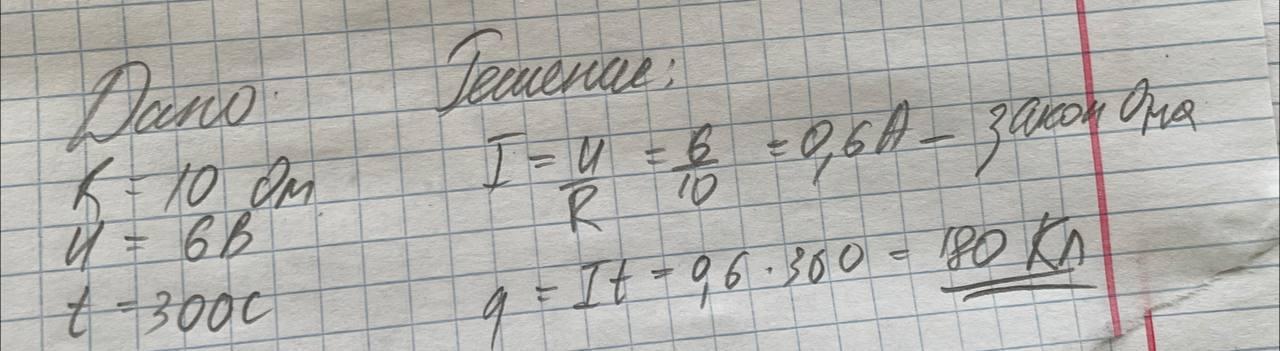 Дано:
R = 10 Ом
U = 6В
t = 300с
Решение:
I = U/R = 6/10 = 0,6А – закон Ома
q = It = 0,6 · 300 = 180 Кл